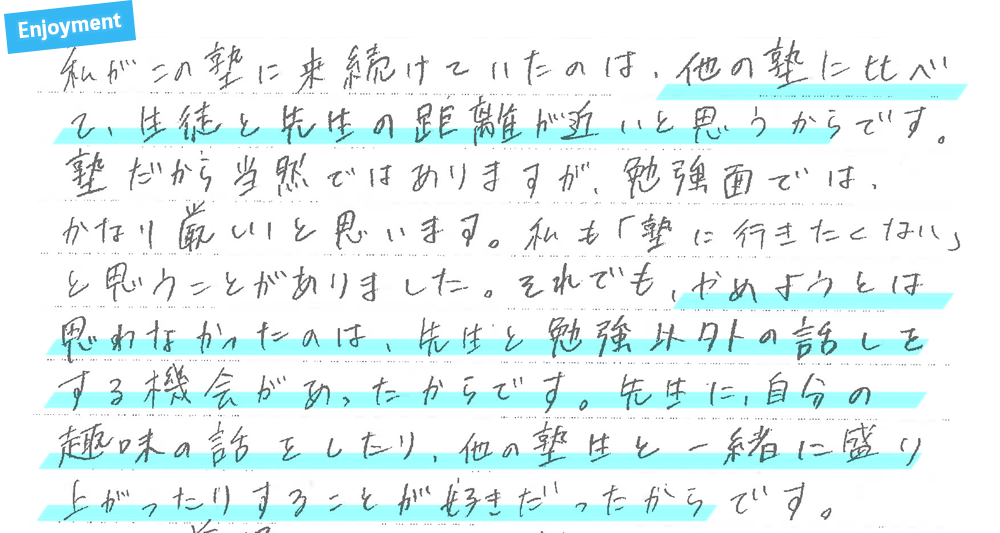 Enjoyment
私がこの塾に来続けていたのは、他の塾に比べ
て、生徒と先生の距離が近いと思うからです。
塾だから当然ではありますが、勉強面では、
かなり厳しいと思います。私も「塾に行きたくない」
と思うことがありました。それでも、やめようとは
思わなかったのは、先生と勉強以外の話しを
する機会があったからです。先生に、自分の
趣味の話をしたり、他の塾生と一緒に盛り
上がったりすることが好きだったからです。